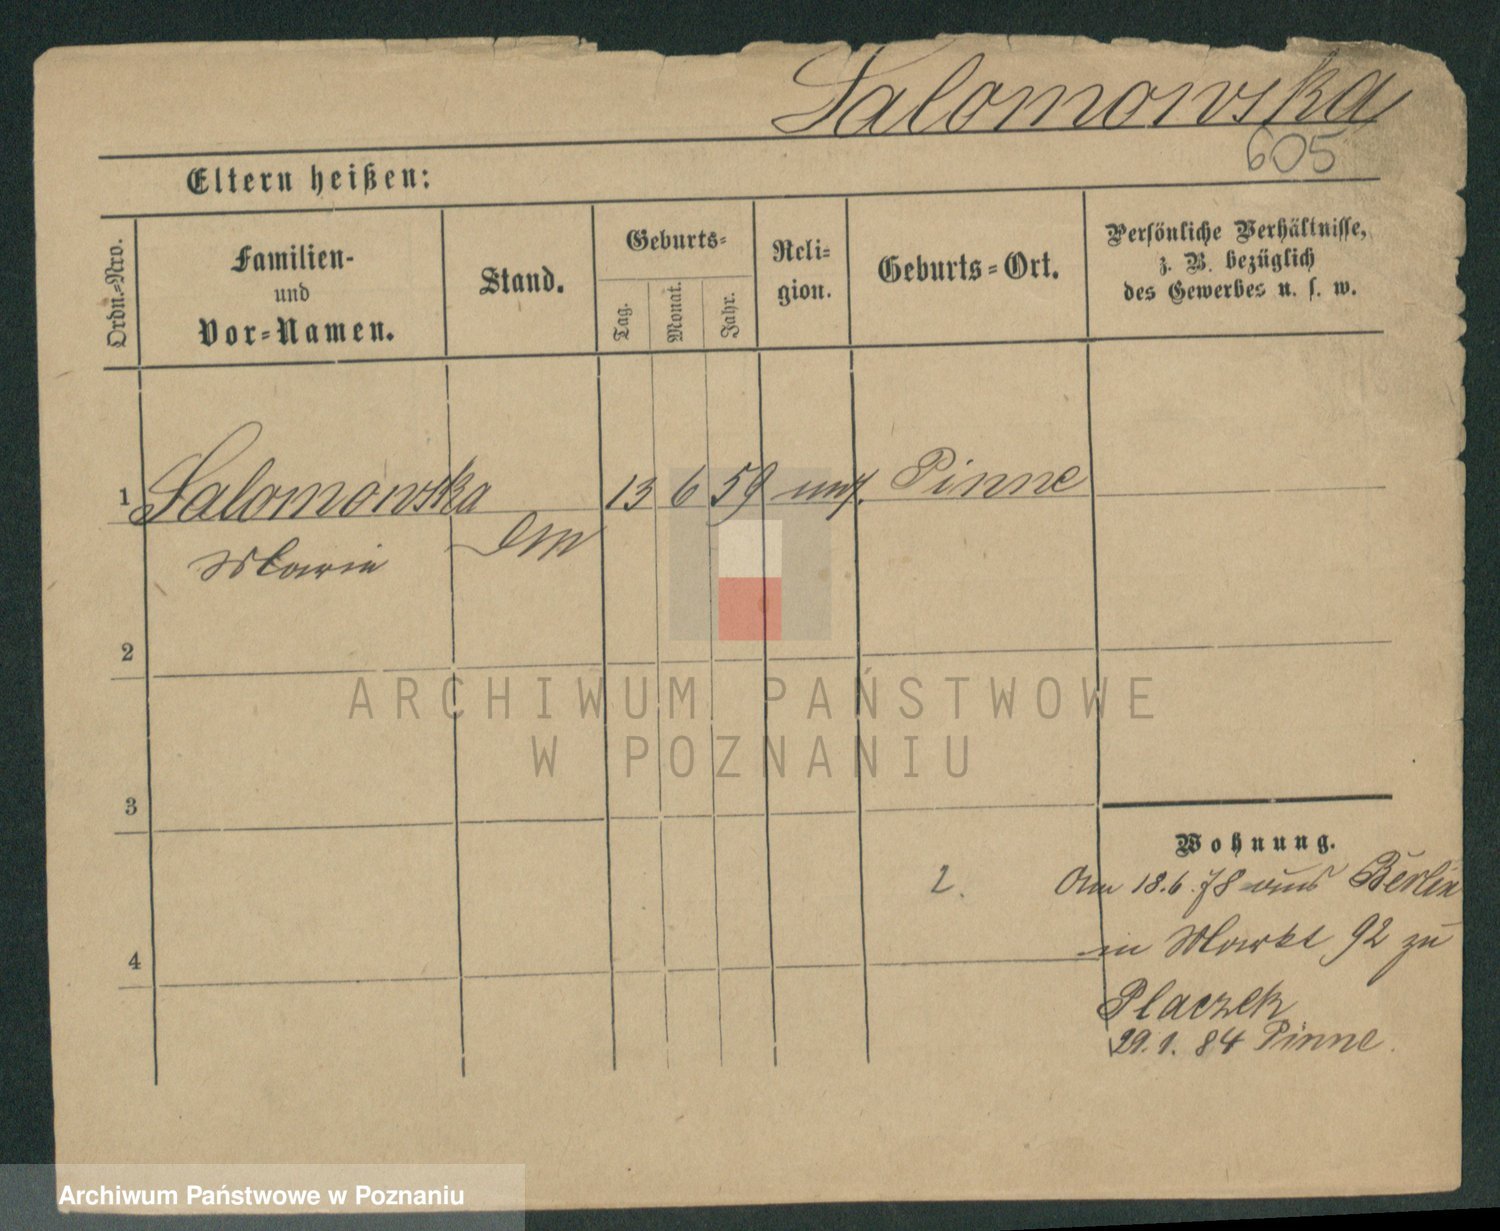 Salomowska
605
Eltern heißen:
Ordn.-Nro.
Familien-
und
Vor-Namen.
Stand.
Geburts-
Tag.
Monat.
Jahr.
Reli-
gion.
Geburts-Ort.
Persönliche Verhältnisse,
z. B. bezüglich
des Gewerbes u. s. w.
1 Salomowska 13 6 59 Pinne
Marie
2
3
4
ARCHIWUM PAŃSTWOWE
W POZNANIU
Wohnung.
2.
Am 18.6.78 aus Berlin
in Markt 92 zu
Placzek
29.1.84 Pinne.
Archiwum Państwowe w Poznaniu